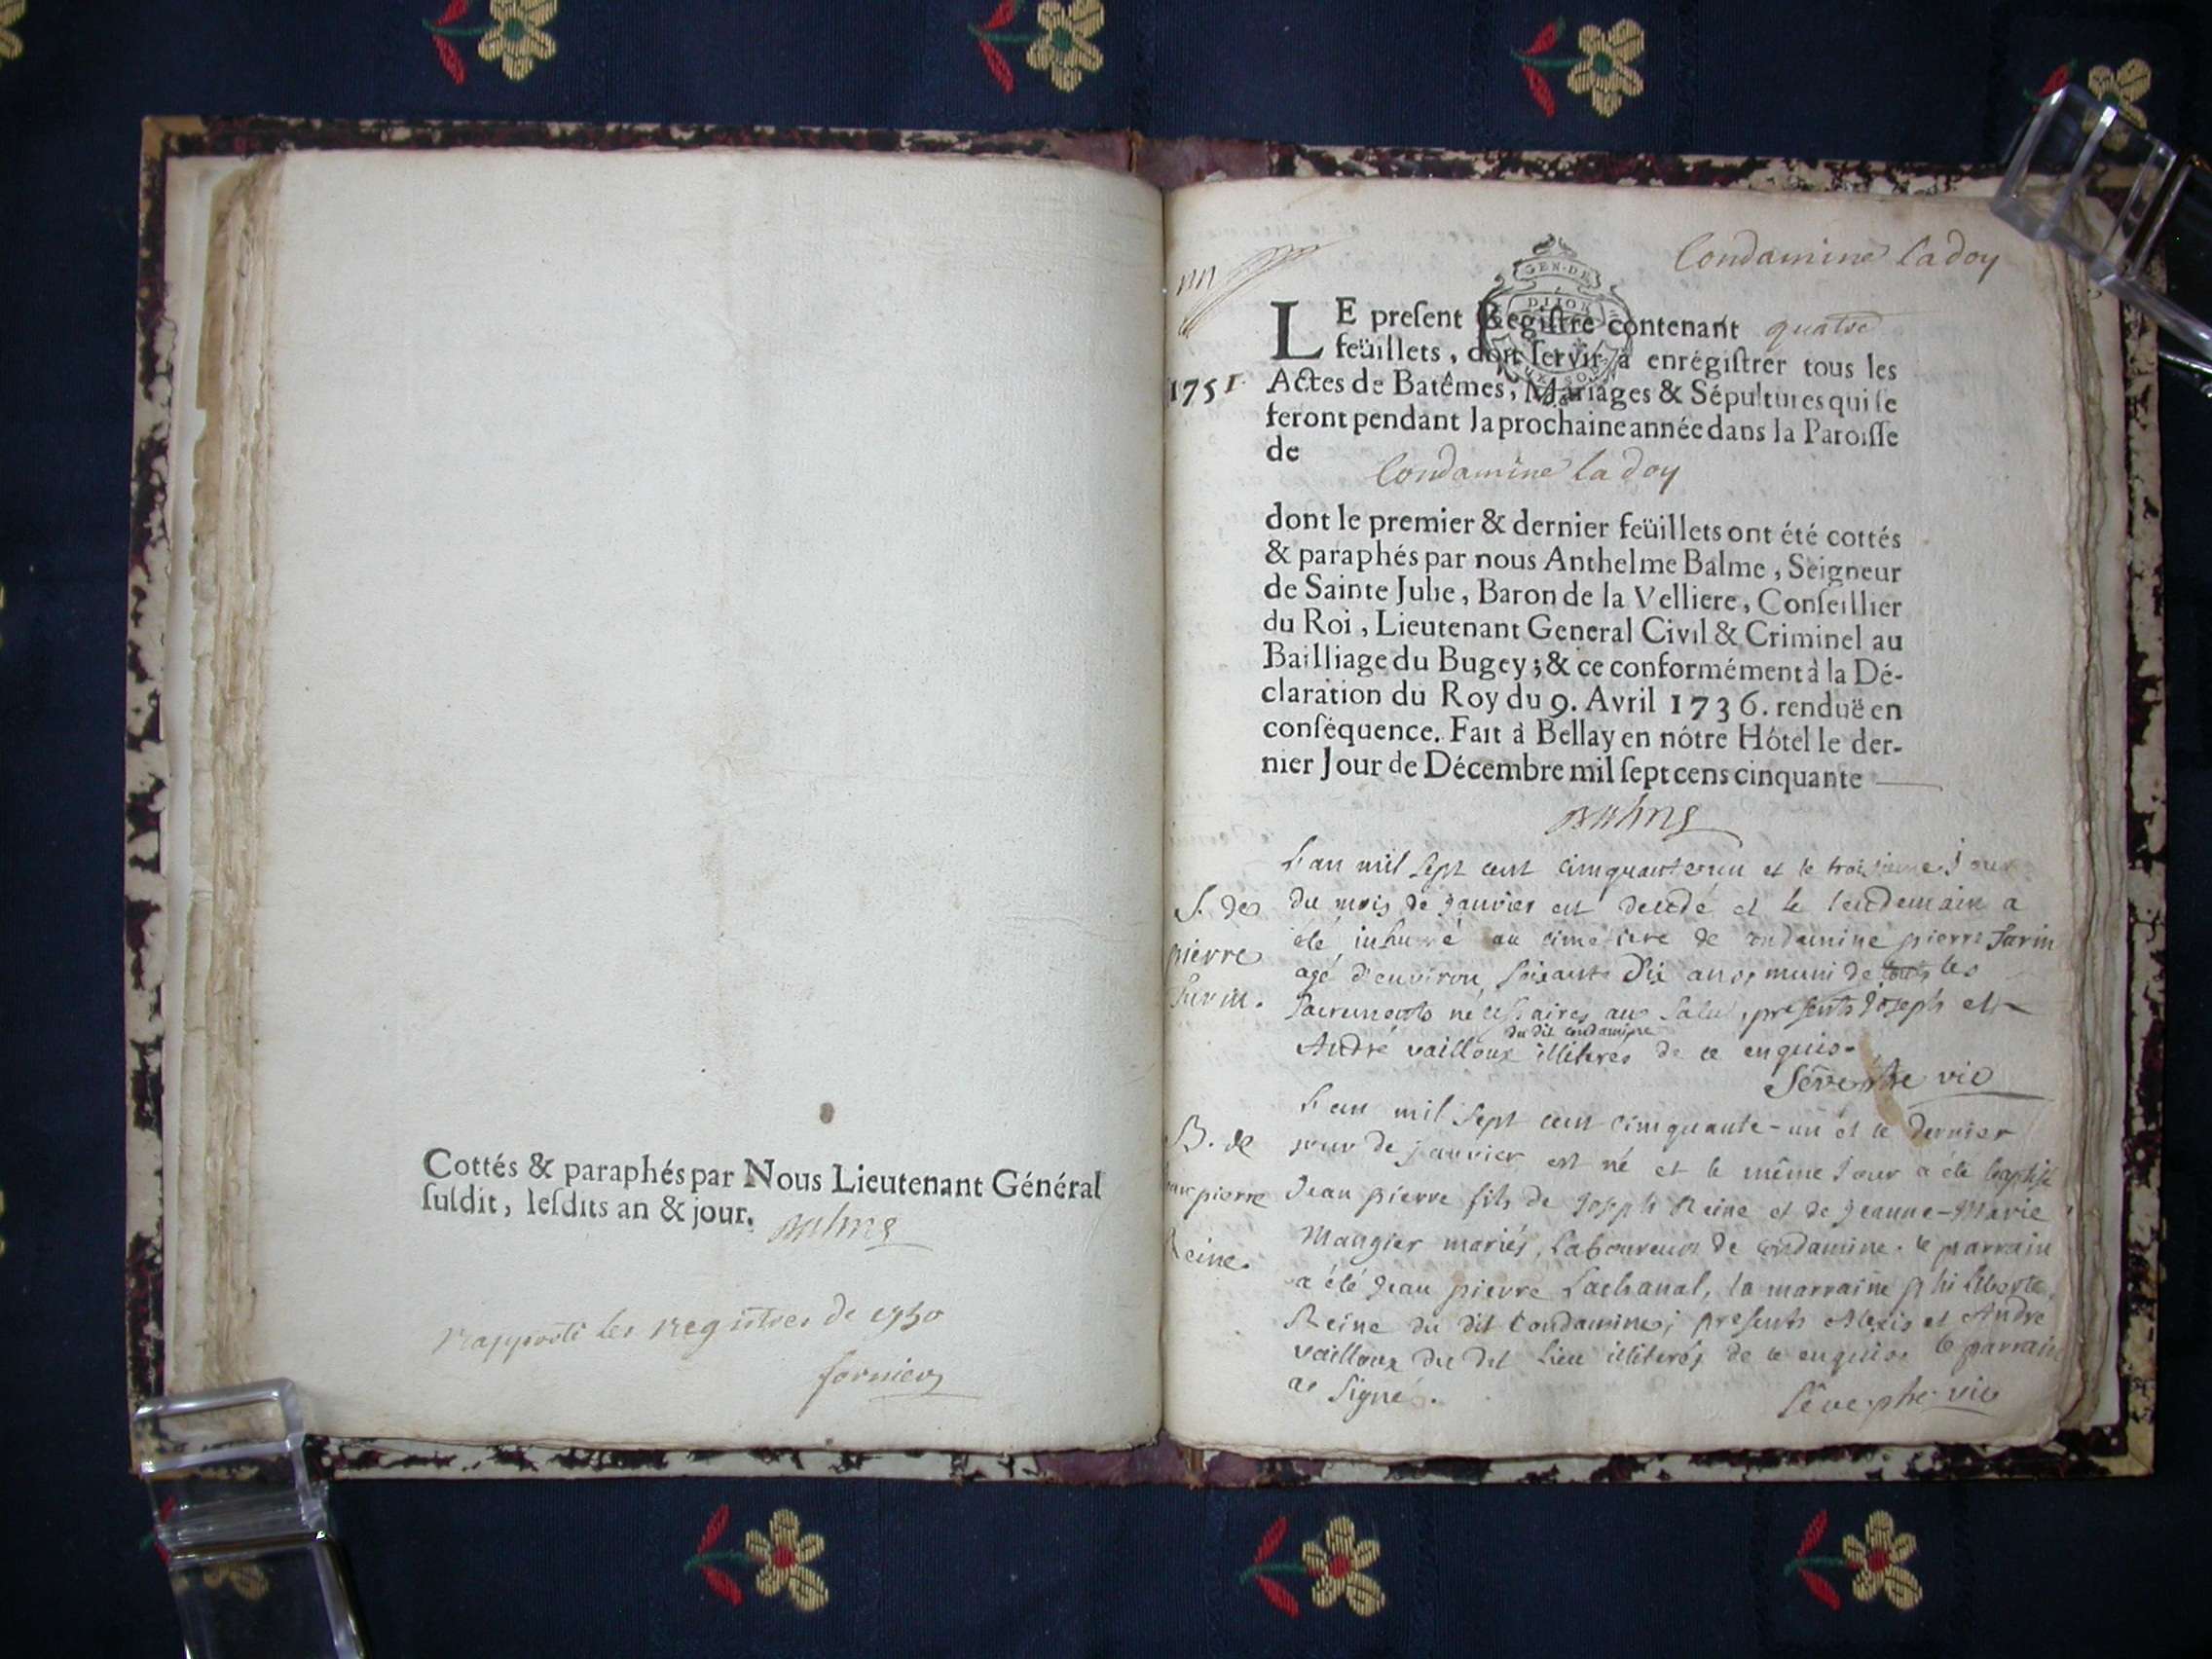 Cottés & paraphés par Nous Lieutenant Général
ſuſdit, leſdits an & jour.
Balme
Rapporté les Registres de 1750
Condamine la doy
GEN. DE
DIJON
LE preſent Regiſtre contenant quatre
feüillets, doit ſervir à enrégiſtrer tous les
1751
Actes de Batêmes, Mariages & Sépultures qui ſe
feront pendant la prochaine année dans la Paroiſſe
de
Condamine la doy
dont le premier & dernier feüillets ont été cottés
& paraphés par nous Anthelme Balme, Seigneur
de Sainte Julie, Baron de la Velliere, Conſeillier
du Roi, Lieutenant General Civil & Criminel au
Bailliage du Bugey; & ce conformément à la Dé-
claration du Roy du 9. Avril 1736. renduë en
conſéquence. Fait à Bellay en nôtre Hôtel le der-
nier Jour de Décembre mil ſept cens cinquante
Balme
S. de
pierre
L'an mil sept cent cinquante un et le troisieme jour
du mois de janvier est decedé et le lendemain a
été inhumé au cimetiere de condamine pierre
agé d'environ soixante dix ans, muni de tous les
sacrements nécessaires au salut, presents joseph et
du dit condamine
André vailloux illiteres de ce enquis.
vic
B. de
jean pierre
Reine.
L'an mil sept cent cinquante-un et le dernier
jour de janvier est né et le même jour a été baptisé
Jean pierre fils de joseph Reine et de jeanne-Marie
Mangier mariés, laboureurs de condamine. le parrain
a été jean pierre Lachanal, la marraine philiberte
Reine du dit Condamine; presents Alexis et André
vailloux du dit lieu illiterés de ce enquis le parrain
a signé.
vic